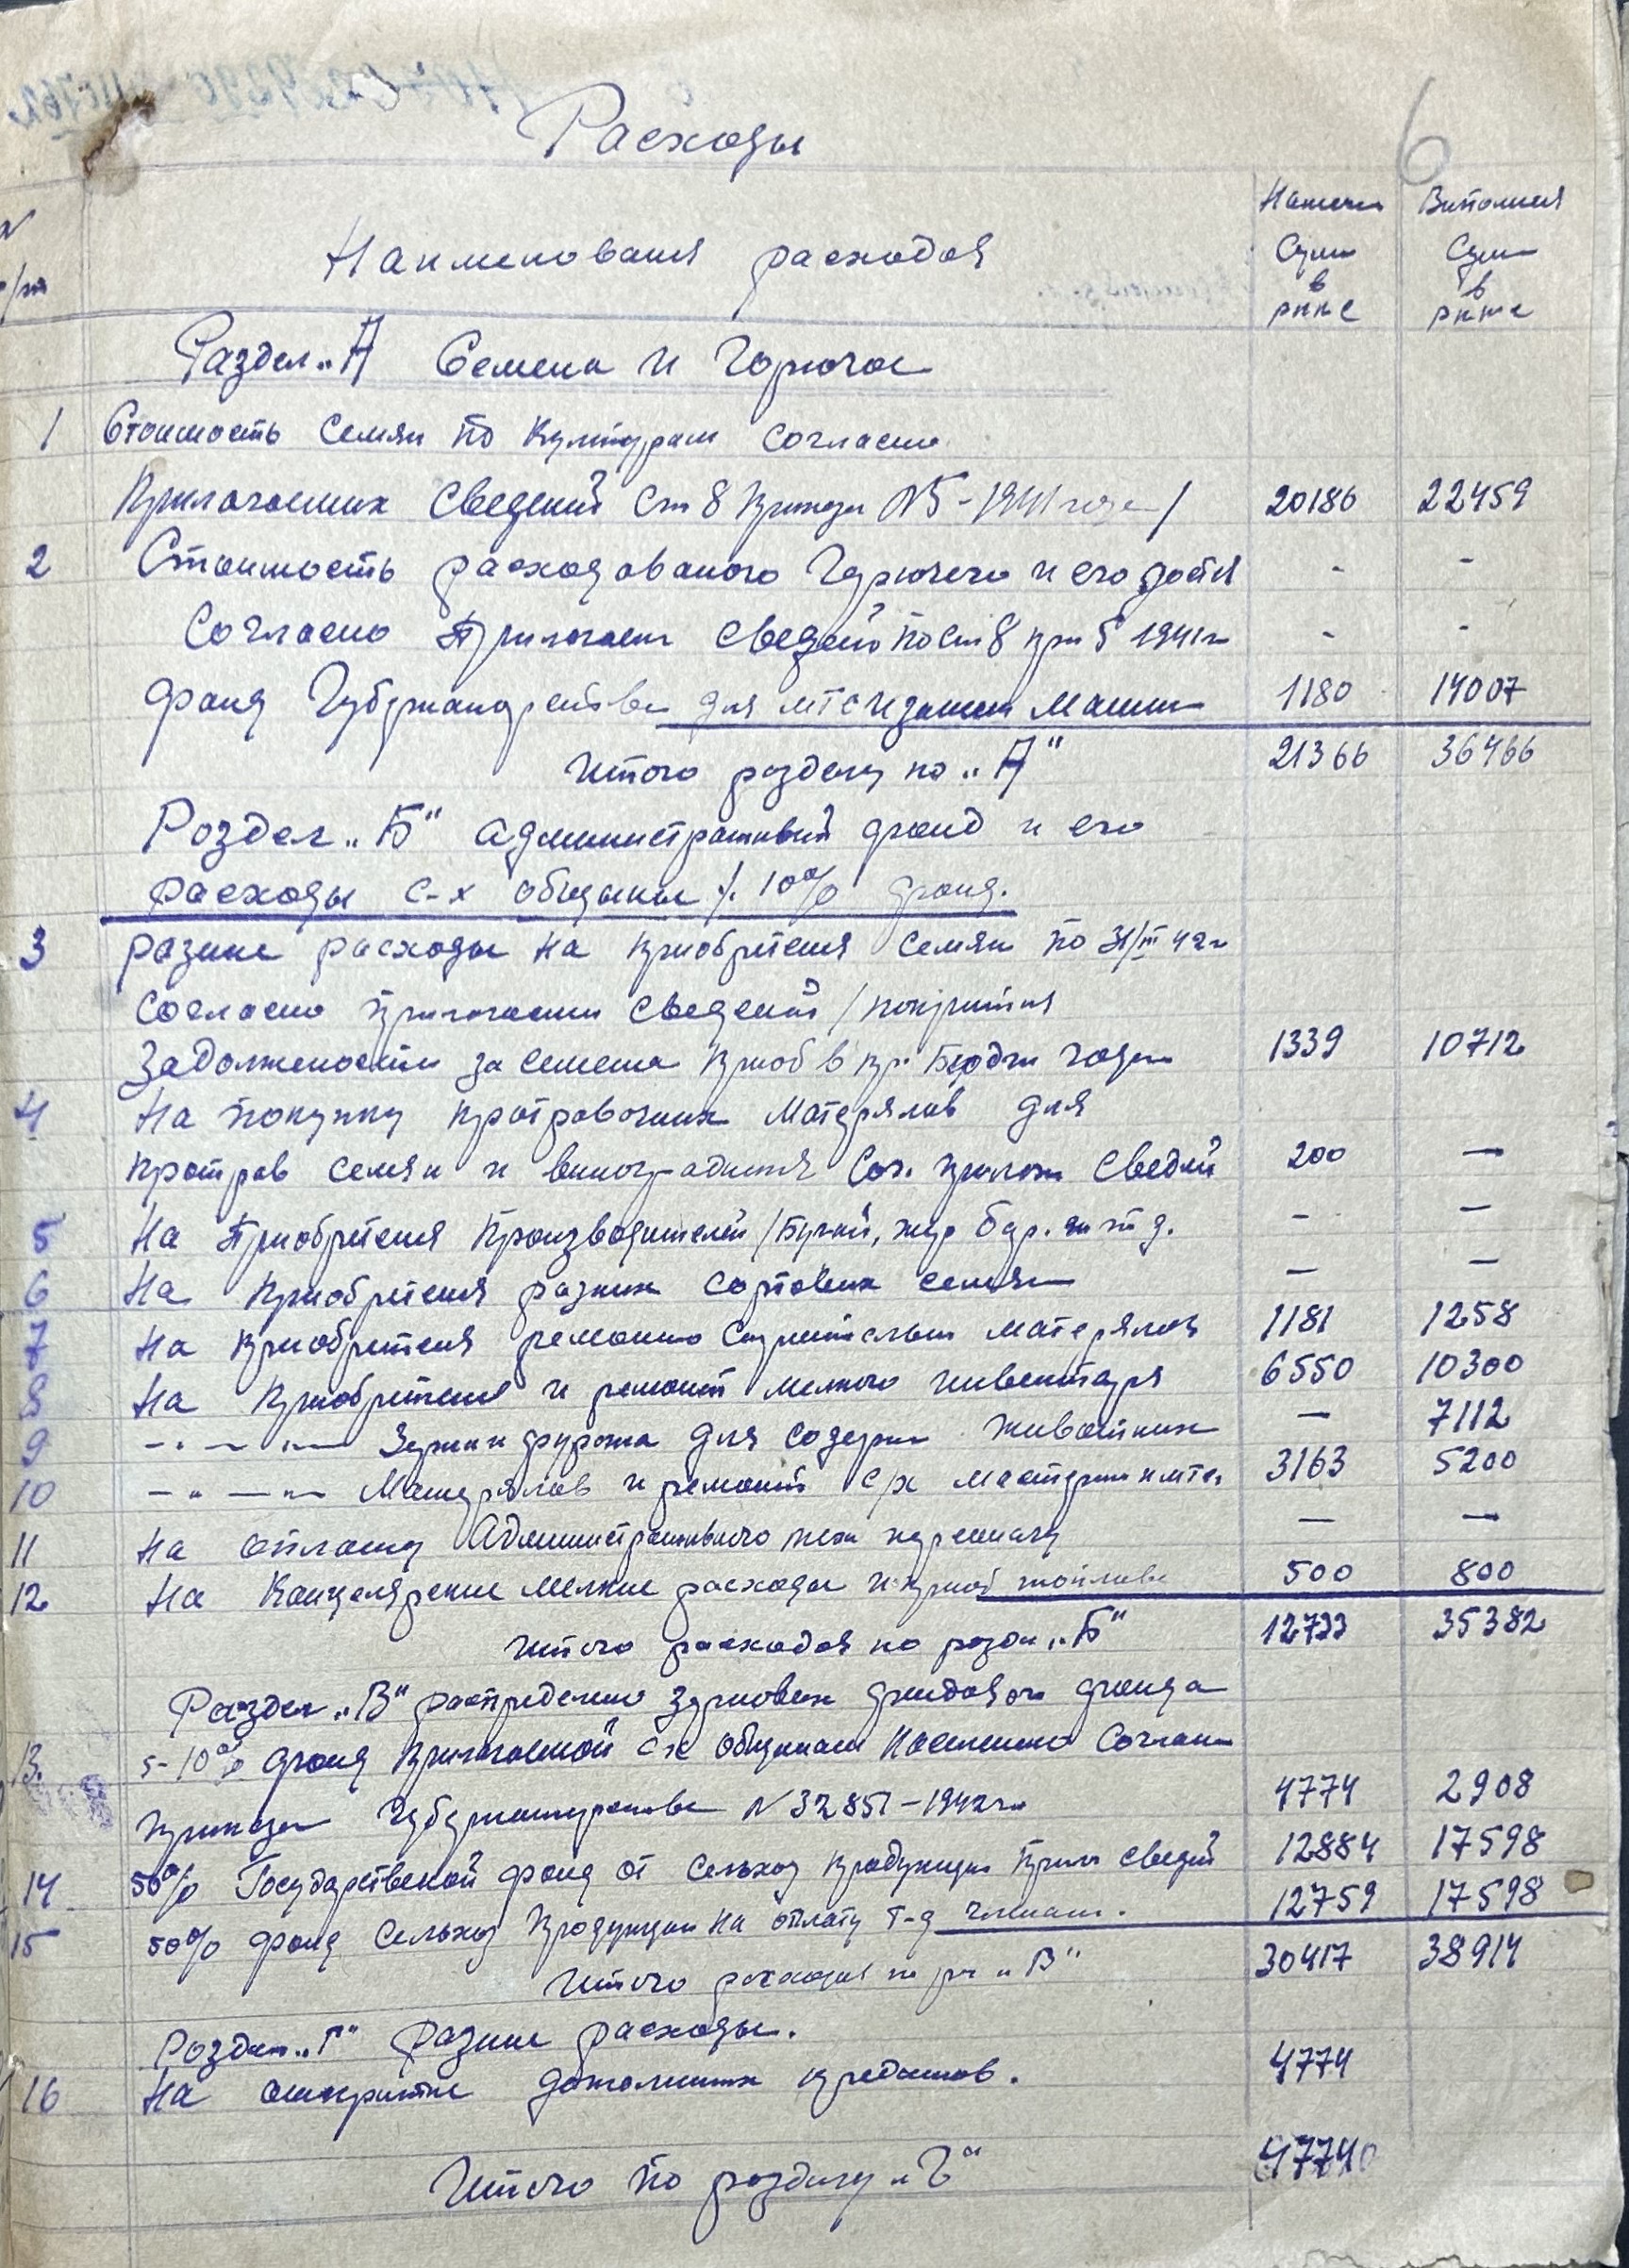 6
Расходы
N
п/п
Наименования расходов
Намечен Виполнен
Сума Сума
в в
рнке рнке
Раздел „А Семена и Горючое
1 Стоимость семян по Культурам Согласно
Прилогаемих Сведений Ст 8 Приказа N5-1941 года/ 20186 22459
2 Стоимость расходованого Горючего и его доставки - -
Согласно Прилогаем Сведений по ст 8 при 5 1941 г - -
фонд Губернаторства для МТС и даним Машин 1180 14007
Итого разделу по „А" 21366 36466
Роздел „Б" Административний фонд и его
расходы с-х общины /. 10% фонд.
3 разние расходы на приобритения семян по 31/III 42 г
Согласно прилогаеми сведений /покрития
Задолжености за семена приоб в пр. Бюджт годам 1339 10712
4 На покупку протравочних матерялов для
протрав семян и виноградника Сог. прилож Сведений 200 —
5 На приобритения Производителей /Бугай, жер Бар. и т д. - —
6 На Приобритения разних сортових семян — —
7 На приобритения ремонтно Строительн матерялов 1181 1258
8 На Приобритения и ремонт мелкого инвентаря 6550 10300
9 -"- Зерна и фуража для содерж животних — 7112
10 -"- Матерялов и ремонт с/х мастерни и мтс. 3163 5200
11 На оплату Административного персоналу — —
12 На Канцелярские мелкие расходы и приоб топлива 500 800
Итого расходов по разд „Б" 12733 35382
Раздел „В" распределено зернових фонда
13. 5-10% фонд Прилогаемой с-х общинам Населению Согласн
приказа Губернаторства N 32851-1942 г. 4774 2908
14 50% Государственой фонд от сельхоз продукции прил сведений 12884 17598
15 50% фонд сельхоз Продукции на оплату т-д членам. 12759 17598
Итого расходов по рз „В" 30417 38914
Роздел „Г" Разние расходы.
16 На открытие дополнитих кредитов. 4774
Итого по роздилу „Г" 4774